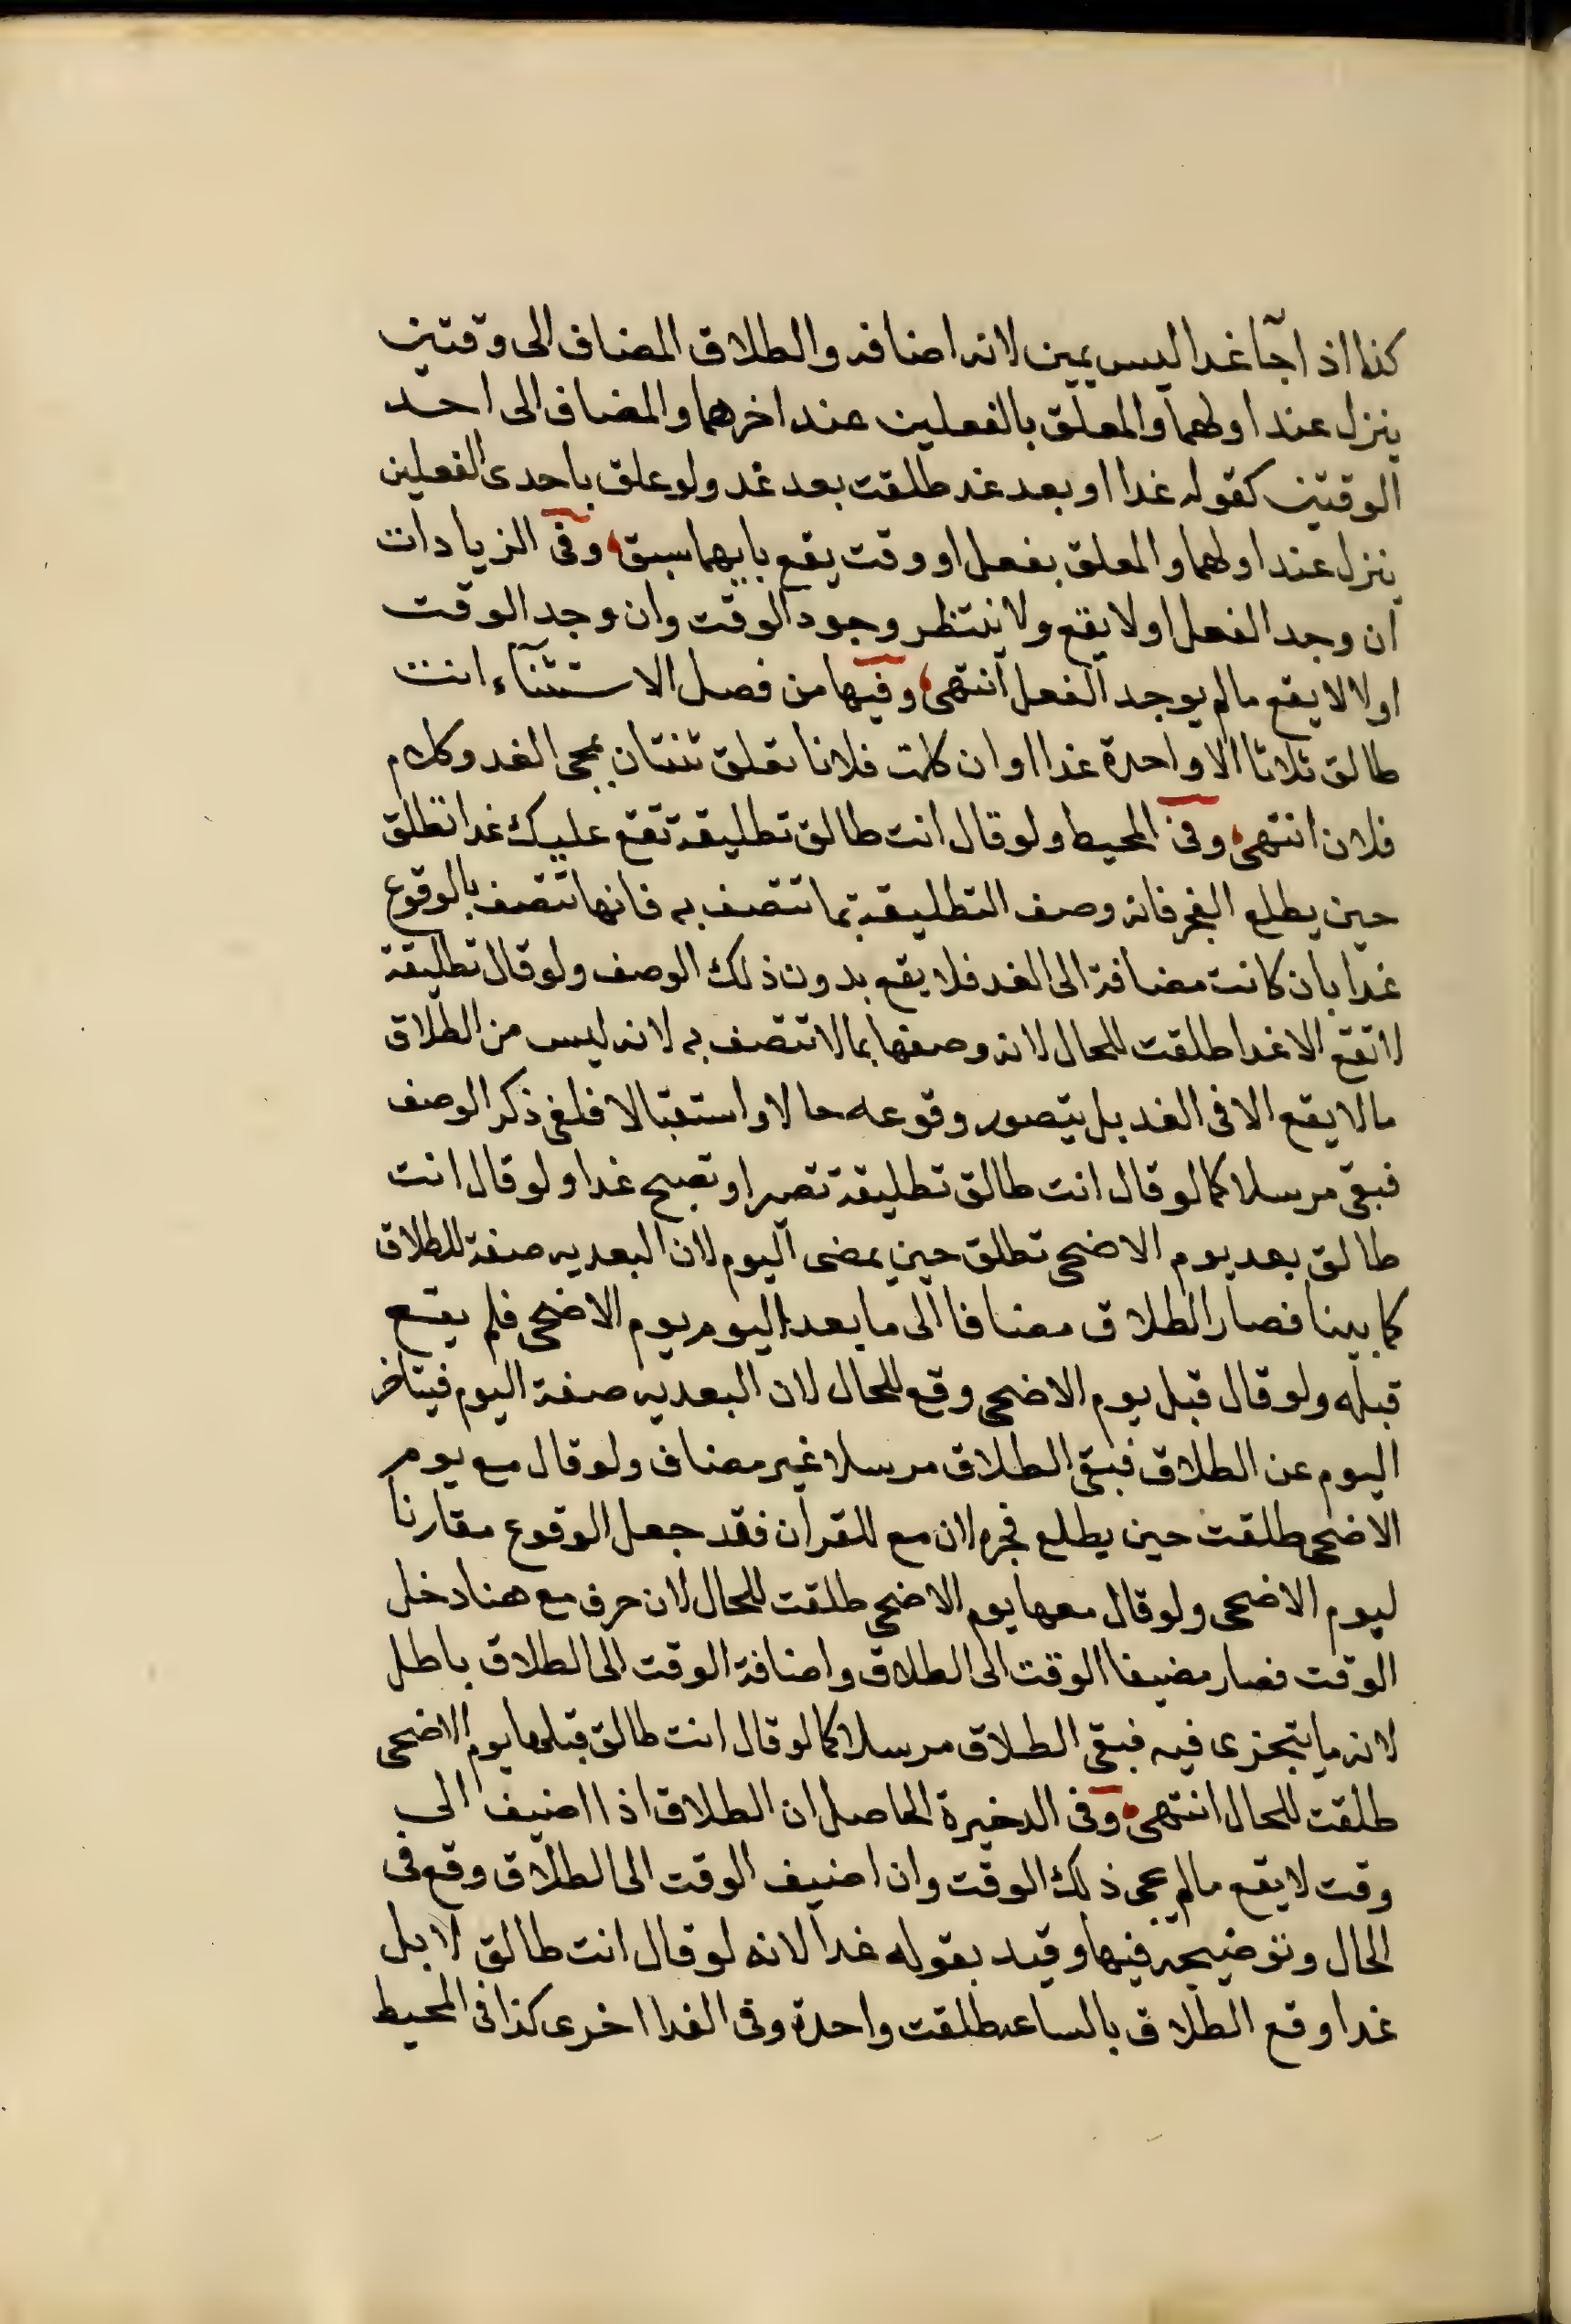 كذا اذا جآ غدا ليس بيمين لانه اضافه والطلاق المضاف الى وقتين
ينزل عند اولهما والمعلق بالفعلين عند اخرهما والمضاف الى احد
الوقتين كقوله غدا او بعد غد طلقت بعد غد ولو علق باحدى الفعلين
ينزل عند اولهما والمعلق بفعل او وقت يقع بايهما سبق وفى الزيادات
ان وجد الفعل اولا يقع ولا ينتظر وجود الوقت وان وجد الوقت
اولا لا يقع ما لم يوجد الفعل انتهى وفيها من فصل الاستثنآء انت
طالق ثلاثا الا واحدة غدا او ان كلمت فلانا تعلق ثنتان بمجى الغد وكلام
فلان انتهى وفى المحيط ولو قال انت طالق تطليقة تقع عليك غدا تطلق
حين يطلع الفجر فانه وصف التطليقة بما تتصف به فانها تتصف بالوقوع
غدا بان كانت مضافة الى الغد فلا يقع بدون ذلك الوصف ولو قال تطليقة
لا تقع الا غدا طلقت للحال لانه وصفها بما لا تتصف به لانه ليس من الطلاق
ما لا يقع الا فى الغد بل يتصور وقوعه حالا واستقبالا فلغى ذكر الوصف
فبقى مرسلا كما لو قال انت طالق تطليقة تصير او تصبح غدا ولو قال انت
طالق بعد يوم الاضحى تطلق حين يمضى اليوم لان البعديه صفة للطلاق
كما بينا فصار الطلاق مضافا الى ما بعد اليوم يوم الاضحى فلم يقع
قبله ولو قال قبل يوم الاضحى وقع للحال لان البعديه صفة اليوم فيتاخر
اليوم عن الطلاق فبقى الطلاق مرسلا غير مضاف ولو قال مع يوم
الاضحى طلقت حين يطلع فجره لان مع للقران فقد جعل الوقوع مقارنا
ليوم الاضحى ولو قال معها يوم الاضحى طلقت للحال لان حرف مع هنا دخل
الوقت فصار مضيفا الوقت الى الطلاق واضافة الوقت الى الطلاق باطل
لانه ما يتجزى فيه فبقى الطلاق مرسلا كما لو قال انت طالق قبلها يوم الاضحى
طلقت للحال انتهى وفى الدخيرة الحاصل ان الطلاق اذا اضيف الى
وقت لا يقع ما لم يجى ذلك الوقت وان اضيف الوقت الى الطلاق وقع فى
الحال وتوضيحه فيها وقيد بقوله غدا لانه لو قال انت طالق لا بل
غدا وقع الطلاق بالساعه طلقت واحدة وفى الغد اخرى كذا فى المحيط